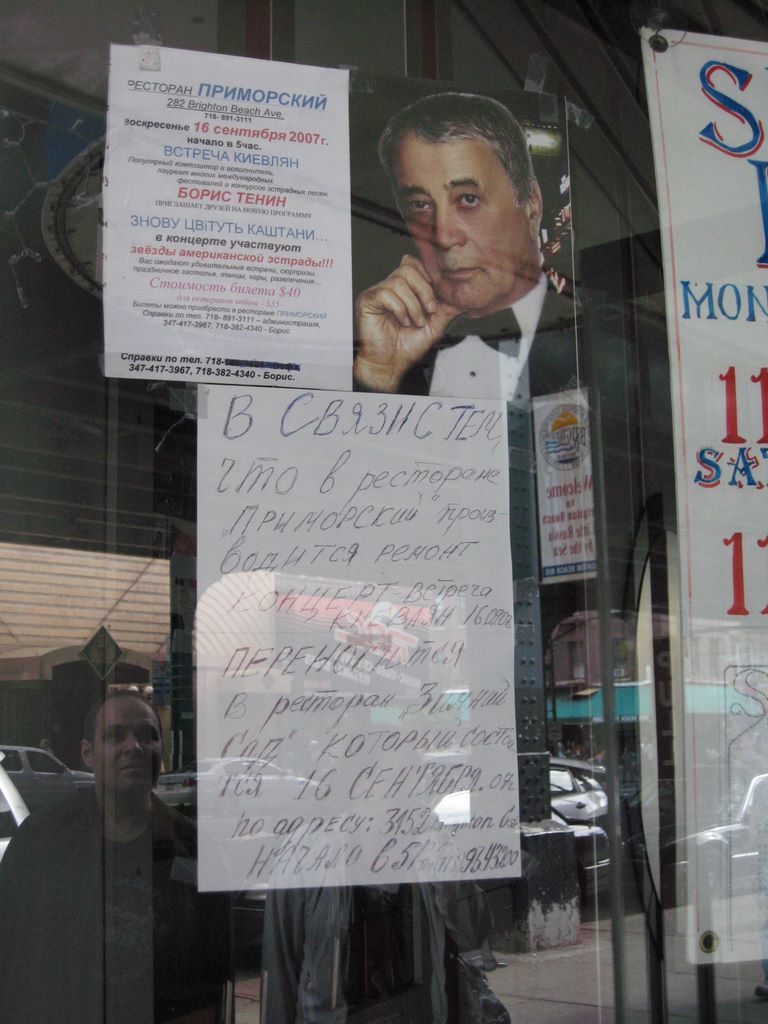 РЕСТОРАН ПРИМОРСКИЙ
282 Brighton Beach Ave.
718- 891-3111
Воскресенье 16 сентября 2007г.
начало в 5час.
ВСТРЕЧА КИЕВЛЯН
Популярный композитор и исполнитель,
лауреат многих международных
фестивалей и конкурсов эстрадных песен
БОРИС ТЕНИН
ПРИГЛАШАЕТ ДРУЗЕЙ НА НОВУЮ ПРОГРАММУ
ЗНОВУ ЦВіТУТЬ КАШТАНИ...
в концерте участвуют
звёзды американской эстрады!!!
Вас ожидают удивительные встречи, сюрпризы,
праздничное застолье, танцы, игры, развлечения...
Стоимость билета $40
для ветеранов войны - $35
Билеты можно приобрести в ресторане ПРИМОРСКИЙ
Справки по тел. 718- 891-3111 – администрация,
347-417-3967, 718-382-4340 - Борис
Справки по тел. 718-
347-417-3967, 718-382-4340 - Борис.
В СВЯЗИ С ТЕМ,
что в ресторане
„ПРИМОРСКИЙ" произ-
водится ремонт
КОНЦЕРТ-ВСТРЕЧА
КИЕВЛЯН
ПЕРЕНОСИТСЯ
в ресторан „Зимний
Сад" который состои
тся 16 СЕНТЯБРЯ. 07г
по адресу: 3152
НАЧАЛО в 5
Welcome
to
Brighton Beach
Little Russia
by the Sea
S
MON
11
SAT
11
S